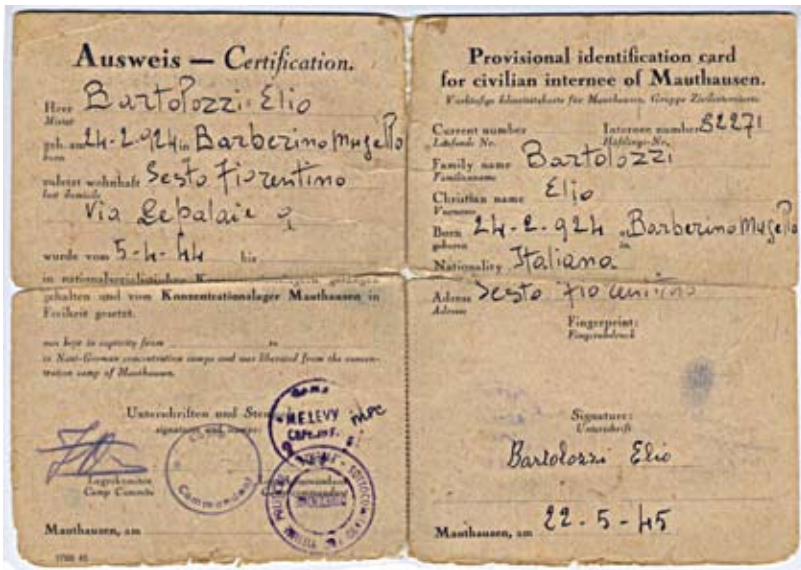 Ausweis — Certification.
Herr Bartolozzi Elio
Mister
geb. am 24-2-924 in Barberino Mugello
born
zuletzt wohnhaft Sesto Fiorentino
last domicile
Via Lepalaie 9
wurde vom 5-4-44 bis
in nationalsozialistischen Konzentrationslagern gefangen
gehalten und vom Konzentrationslager Mauthausen in
Freiheit gesetzt.
was kept in captivity from to
in Nazi-German concentration camps and was liberated from the concen-
tration camp of Mauthausen.
Unterschriften und
signatures and
M.E.LEVY
CAPT.
Commandant
Lagerkomitee
Camp Committe
Mauthausen, am
Provisional identification card
for civilian internee of Mauthausen.
Vorläufige Identitätskarte für Mauthausen, Gruppe Zivilinternierte.
Current number Internee number 82271
Laufende Nr. Häftlings-Nr.
Family name Bartolozzi
Familienname
Christian name Elio
Vorname
Born 24-2-924 at Barberino Mugello
geboren in
Nationality Italiana
Adress Sesto Fiorentino
Adresse
Fingerprint:
Fingerabdruck
Signature:
Unterschrift
Bartolozzi Elio
Mauthausen, am 22-5-45